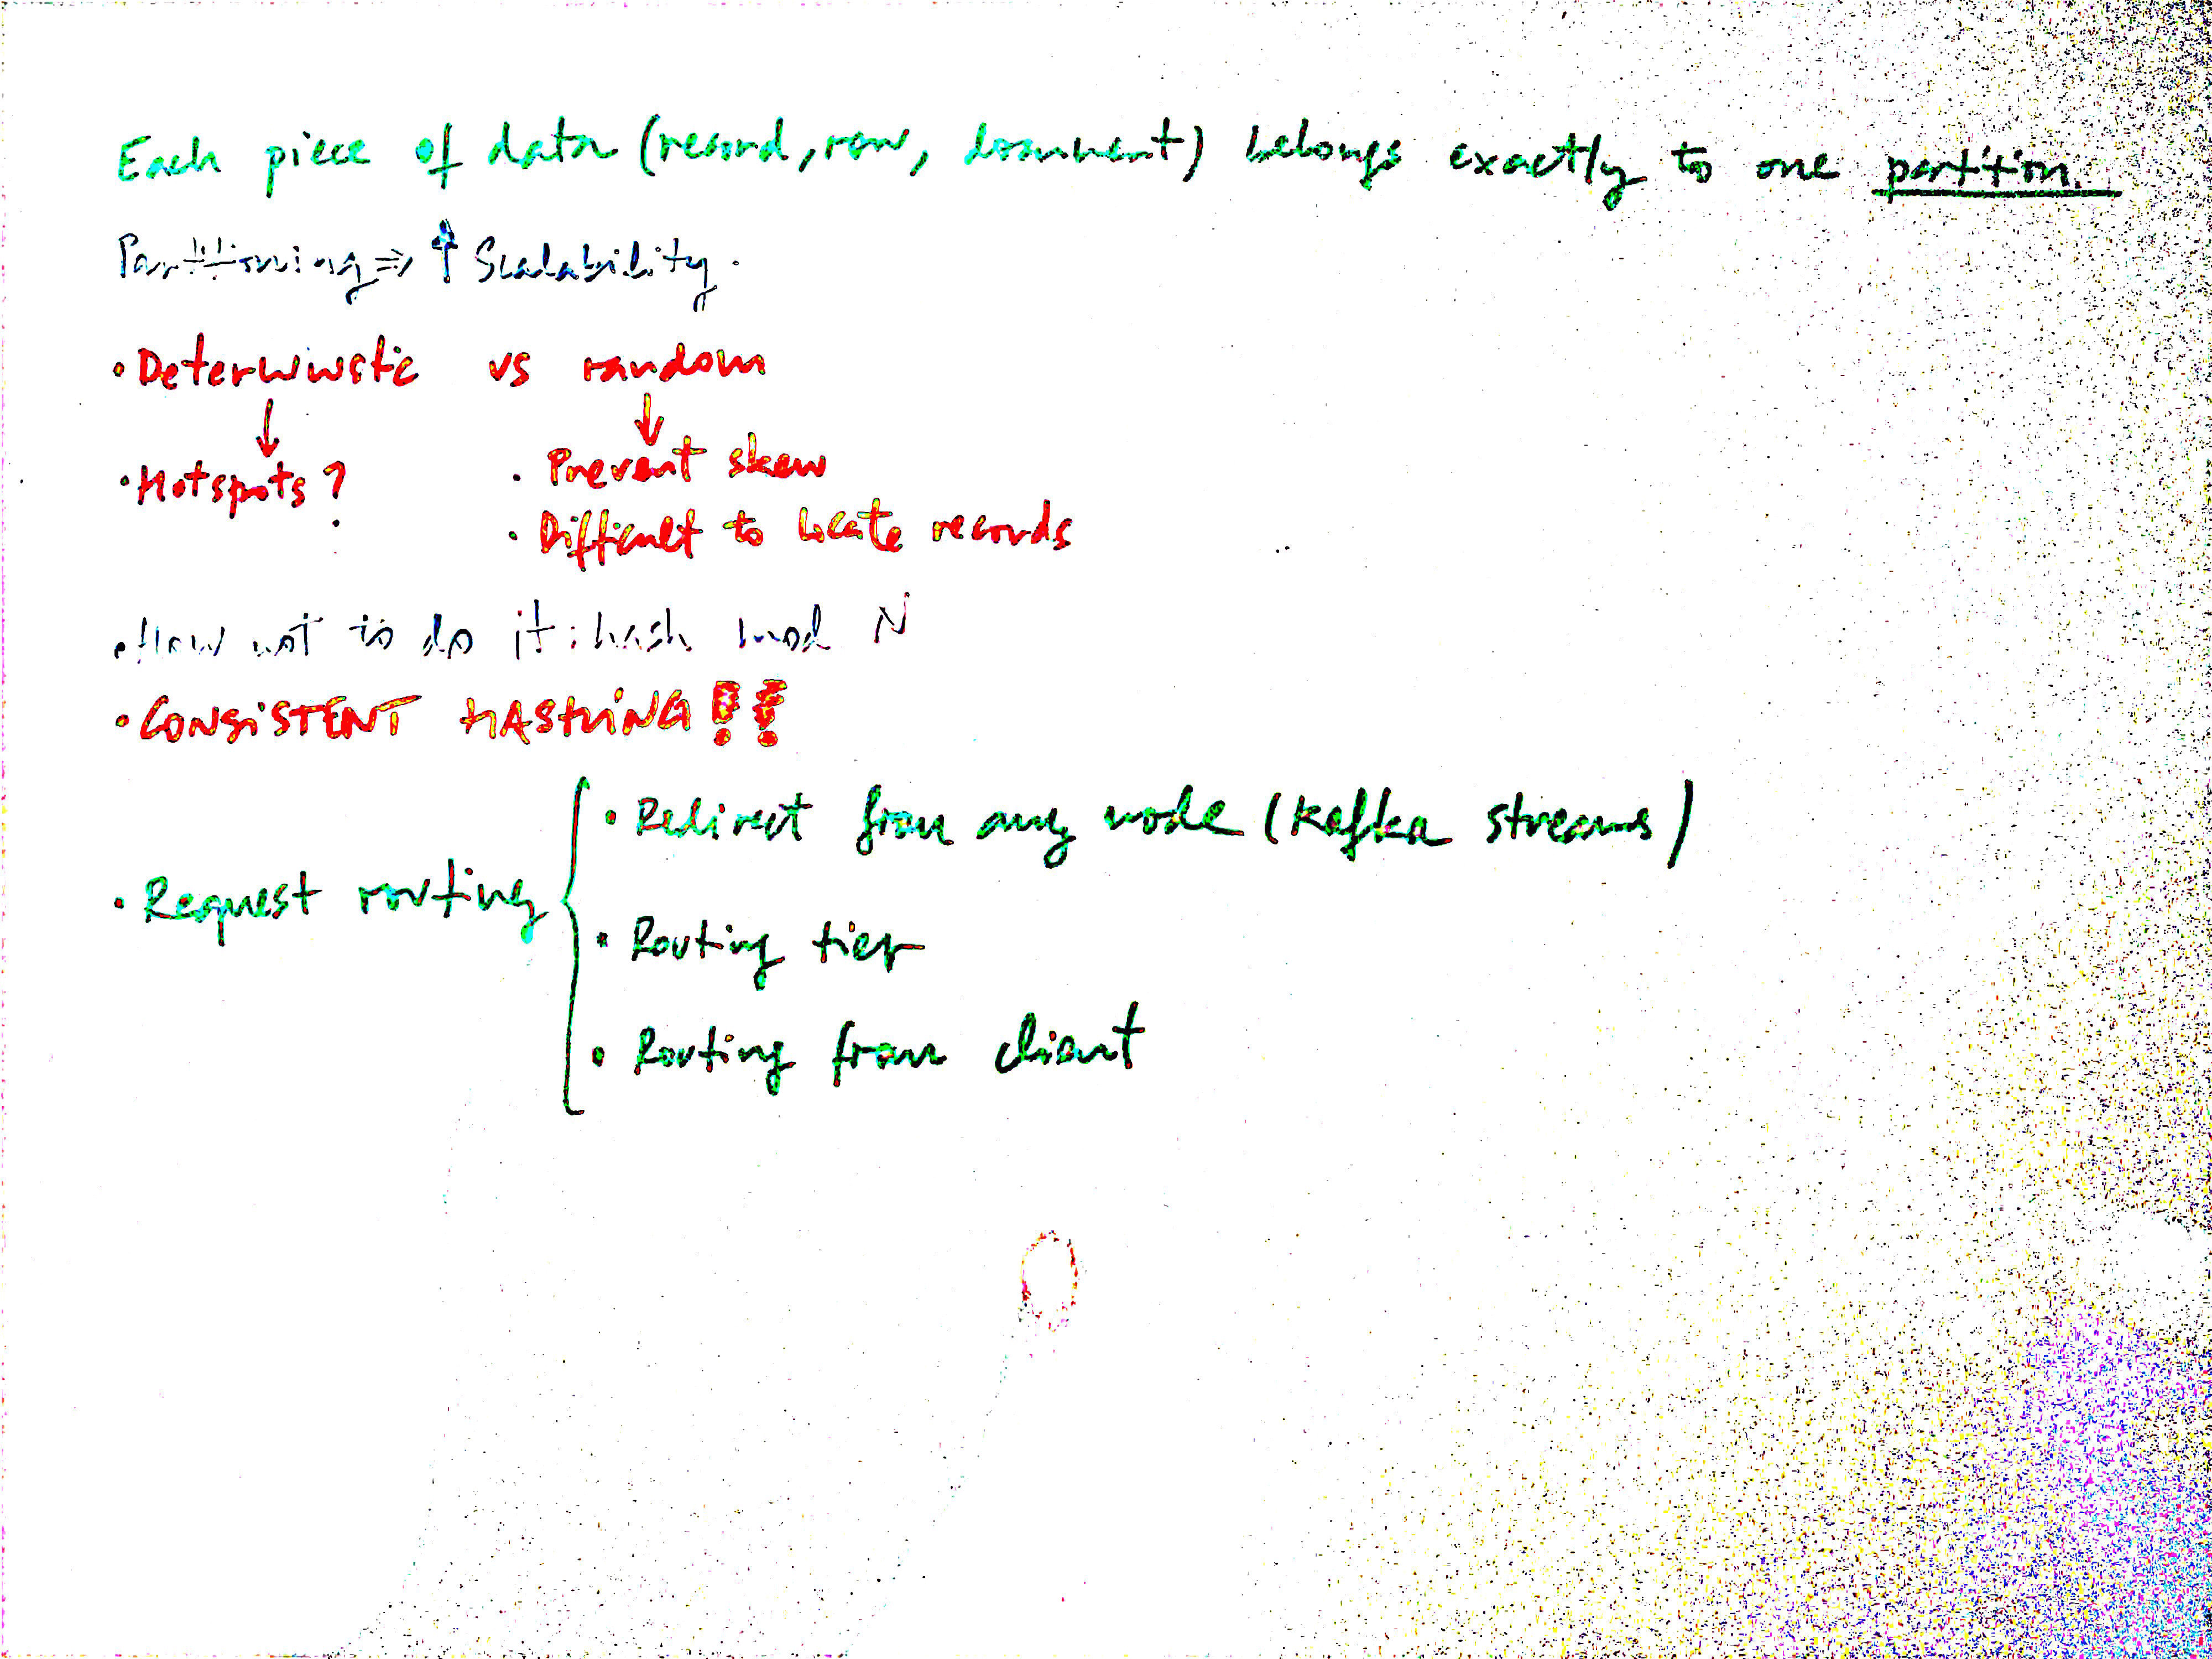 Each piece of data (record, row, document) belongs exactly to one partition.
Partitioning ⇒ ↑ Scalability.
• Deterministic vs random
↓ ↓
• Hotspots?
• Prevent skew
• Difficult to locate records
• How not to do it: hash mod N
• CONSISTENT HASHING!!
• Request routing {
• Redirect from any node (Kafka streams)
• Routing tier
• Routing from client